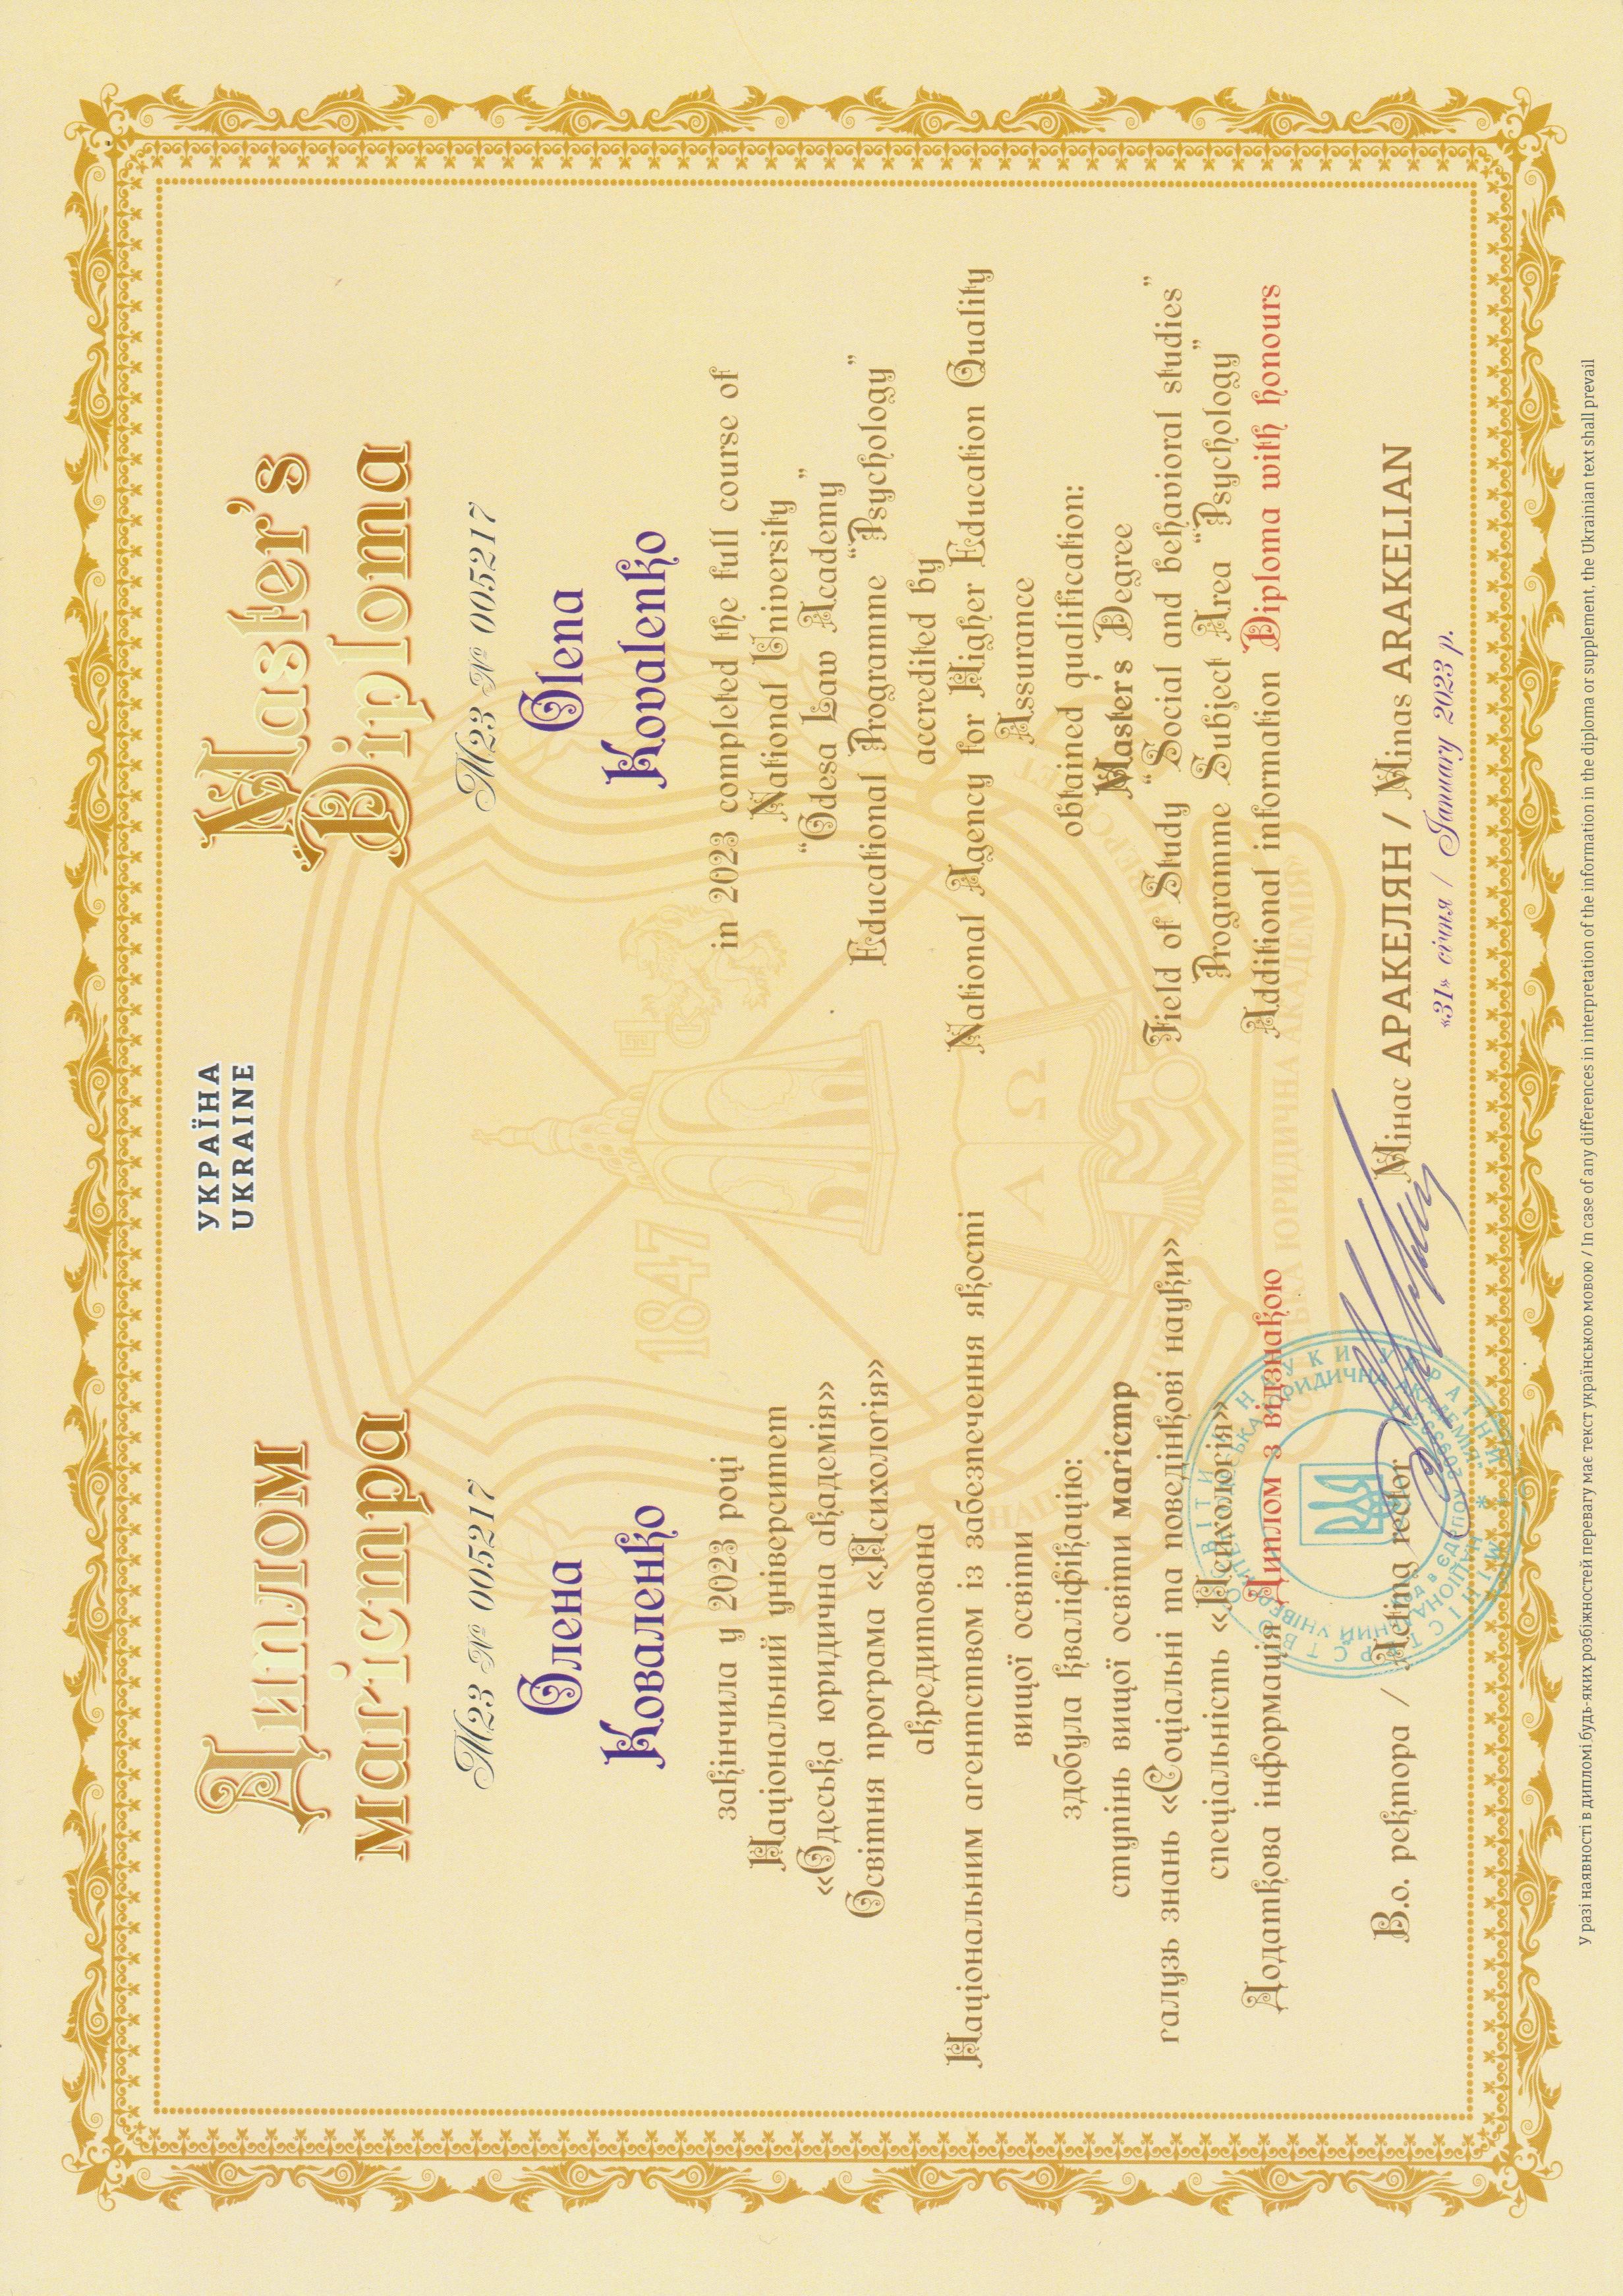 УКРАЇНА
UKRAINE
Диплом
магістра
М23 № 005217
Олена
Коваленко
закінчила у 2023 році
Національний університет
«Одеська юридична академія»
Освітня програма «Психологія»
акредитована
Національним агентством із забезпечення якості
вищої освіти
здобула кваліфікацію:
ступінь вищої освіти магістр
галузь знань «Соціальні та поведінкові науки»
спеціальність «Психологія»
Додаткова інформація Диплом з відзнакою
Master's
Diploma
М23 № 005217
Olena
Kovalenko
in 2023 completed the full course of
National University
“Odesa Law Academy”
Educational Programme “Psychology”
accredited by
National Agency for Higher Education Quality
Assurance
obtained qualification:
Master's Degree
Field of Study “Social and behavioral studies”
Programme Subject Area “Psychology”
Additional information Diploma with honours
В.о. ректора / Acting rector Мінас АРАКЕЛЯН / Minas ARAKELIAN
«31» січня / January 2023 р.
1847
Α Ω
У разі наявності в дипломі будь-яких розбіжностей перевагу має текст українською мовою / In case of any differences in interpretation of the information in the diploma or supplement, the Ukrainian text shall prevail